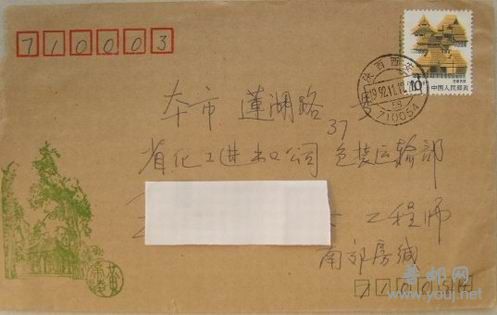 710003
陕西西安
1992.11.12
710054
10
中国人民邮政
本市 莲湖路
37号
省化工进出口公司 包装运输部
工程师
南郊房缄
710054
普邮网
www.youj.net